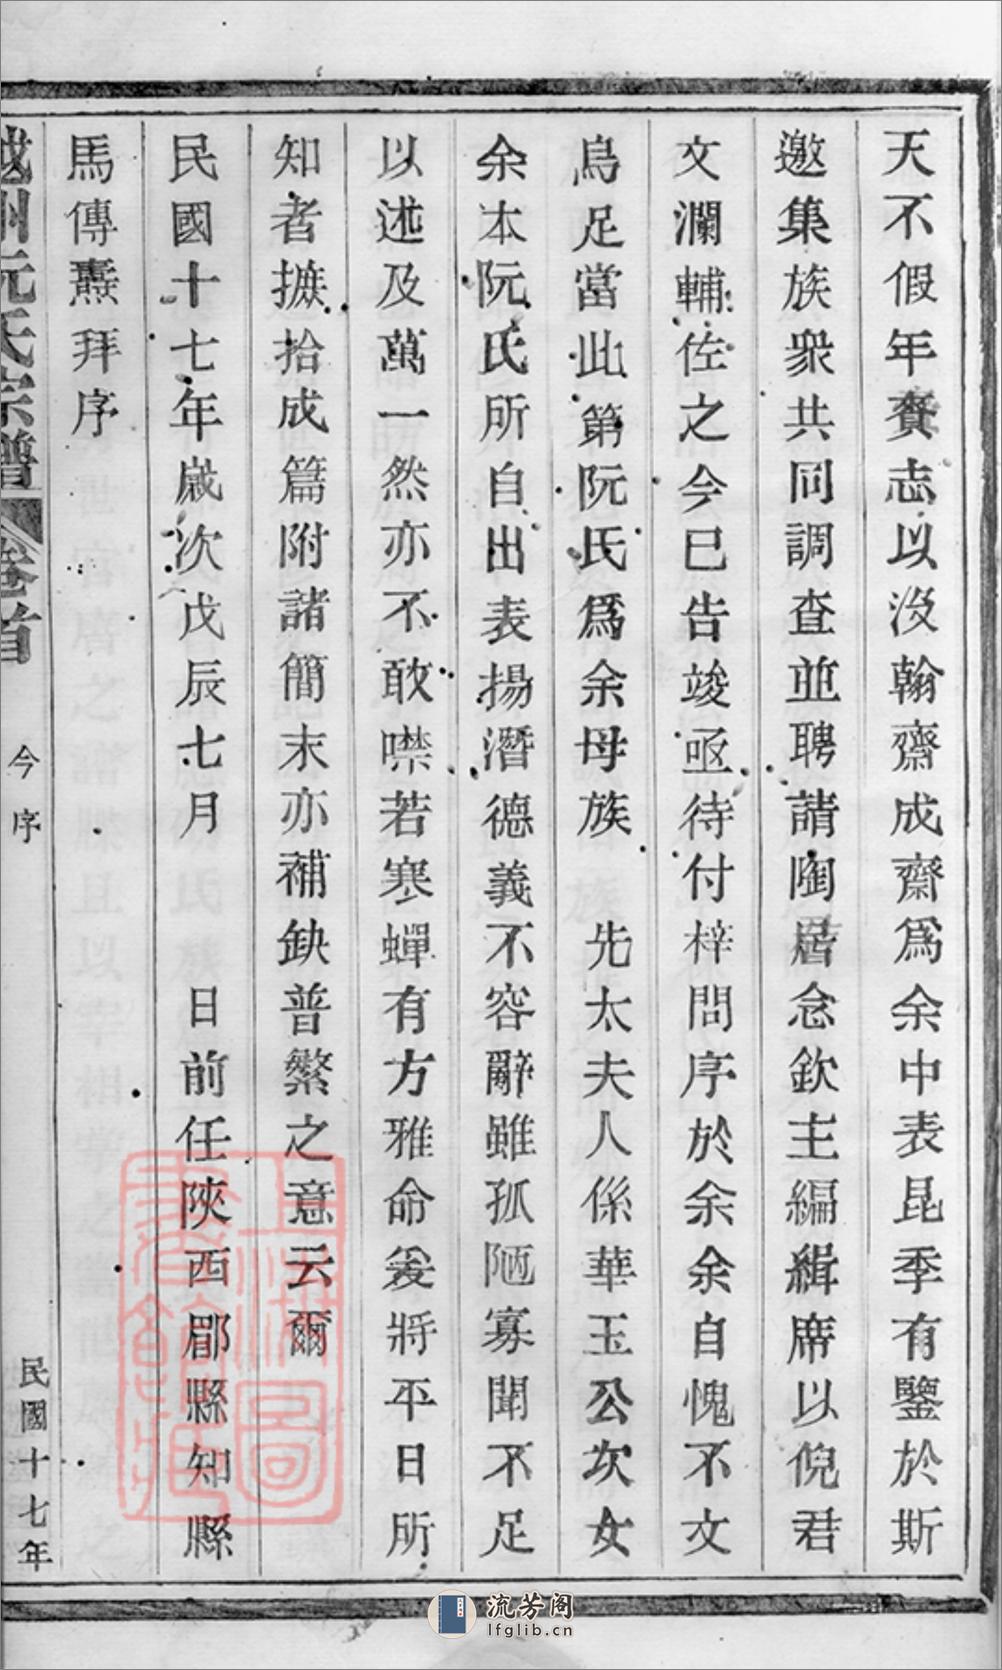 天不假年賚志以沒翰齋成齋爲余中表昆季有鑒於斯
邀集族衆共同調查並聘請陶居念欽主編緝席以倪君
文瀾輔佐之今已告竣亟待付梓問序於余余自愧不文
烏足當此第阮氏爲余母族先太夫人係華玉公次女
余本阮氏所自出表揚潛德義不容辭雖孤陋寡聞不足
以述及萬一然亦不敢噤若寒蟬有方雅命爰將平日所
知者摭拾成篇附諸簡末亦補缺普繁之意云爾
民國十七年歲次戊辰七月 日前任陝西郿縣知縣
馬傳燾拜序
越州阮氏宗譜 卷首 今序 民國十七年
上海圖書館藏
流芳阁
lfglib.cn